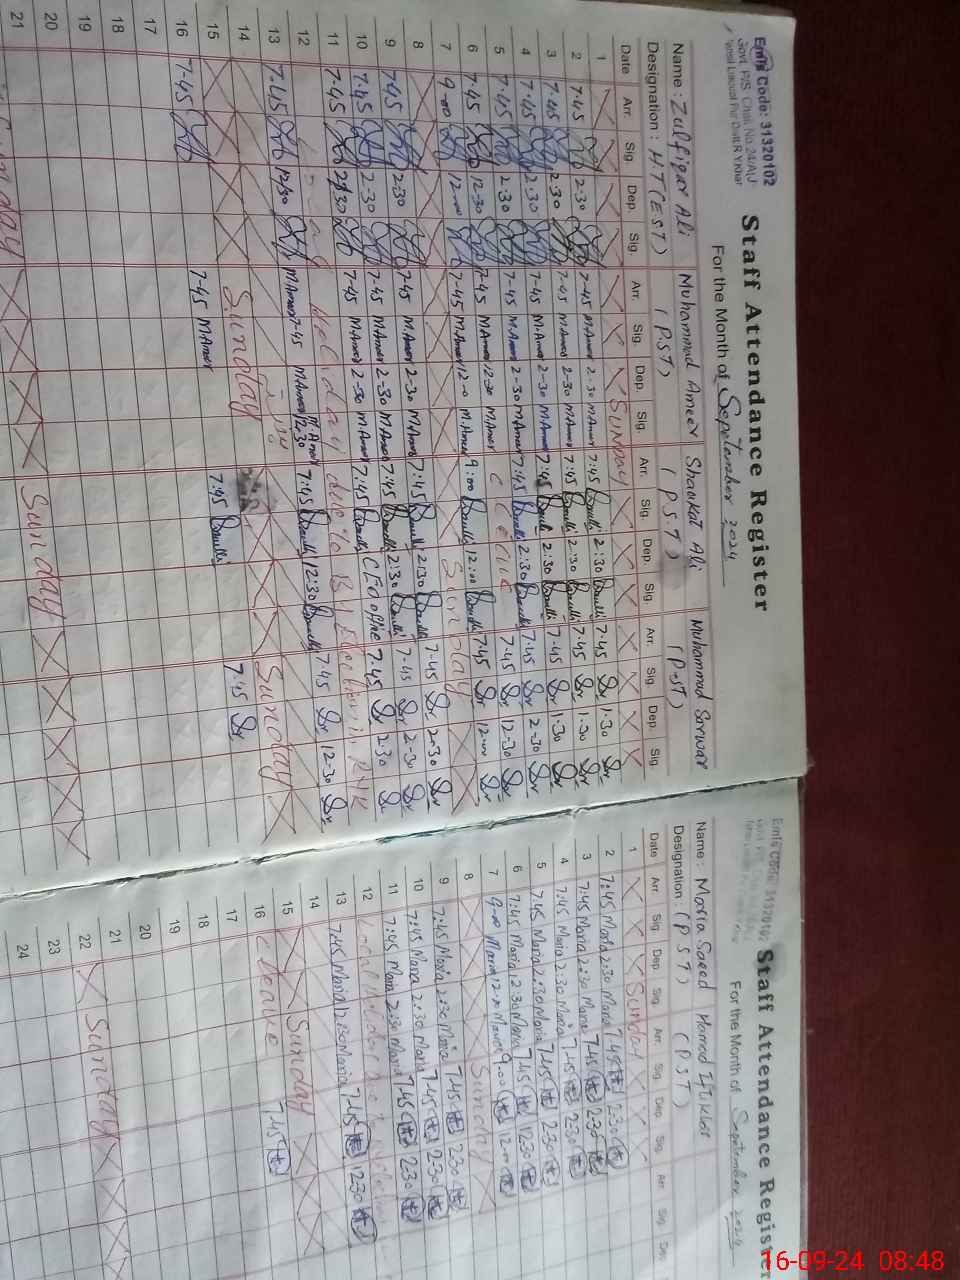 Emis Code: 31320102
Govt. P/S. Chak No.24/A/J
Staff Attendance Register
For the Month of September 2024
Name: Zulfiqar Ali Muhammad Ameer Shaukat Ali Muhammad Sarwar
Designation: H.T (EST) (P.ST) (P.S.T) (P.ST)
Date Arr. Sig. Dep. Sig. Arr. Sig. Dep. Sig. Arr. Sig. Dep. Sig. Arr. Sig. Dep. Sig.
1 Sunday
2 7.45 2.30 7-45 M.Ameer 2-30 M.Ameer 7:45 2:30 7.45 1.30
3 7.45 2.30 7-45 M.Ameer 2-30 M.Ameer 7:45 2:30 7.45 1.30
4 7.45 2.30 7-45 M.Ameer 2-30 M.Ameer 7:45 2:30 7.45 1.30
5 7.45 2.30 7-45 M.Ameer 2-30 M.Ameer 7:45 2:30 7.45 2-30
6 7.45 12-30 7-45 M.Ameer 12-30 M.Ameer 7.45 12-30
7 9-00 12-00 7-45 M.Ameer 12-0 M.Ameer 9:00 12:00 7.45 12-00
8 Sunday
9 7.45 2.30 7-45 M.Ameer 2-30 M.Ameer 7:45 2:30 7.45 2.30
10 7.45 2.30 7-45 M.Ameer 2-30 M.Ameer 7:45 2:30 7.45 2-30
11 7.45 2:30 7-45 M.Ameer 2-30 M.Ameer 7:45 CEO office 7.45 2.30
12 Local Holiday due to By Election in RYK
13 7.45 12/30 M.Ameer 7-45 M.Ameer 12-30 M.Ameer 7:45 12:30 7.45 12-30
14
15 Sunday Sunday
16 7.45 7-45 M.Ameer 7:45 7.45
17
18
19
20
21 Sunday Sunday
Emis Code: 31320102
Staff Attendance Register
For the Month of September 2024
Name: Maria Saeed Hamad Iftikhar
Designation: (P.S.T) (P.S.T)
Date Arr. Sig. Dep. Sig. Arr. Sig. Dep. Sig. Arr. Sig. Dep.
1 Sunday
2 7:45 Maria 2:30 Maria 7.45 2.30
3 7:45 Maria 2:30 Maria 7.45 2.30
4 7:45 Maria 2:30 Maria 7.45 2.30
5 7:45 Maria 2:30 Maria 7.45 2.30
6 7:45 Maria 12:30 Maria 7.45 12.30
7 9-00 Maria 12-00 Maria 9.00 12-00
8 Sunday
9 7:45 Maria 2:30 Maria 7.45 2.30
10 7:45 Maria 2:30 Maria 7.45 2.30
11 7:45 Maria 2:30 Maria 7.45 2.30
12 Local Holiday due to
13 7:45 Maria 12:30 Maria 7.45 12.30
14
15 Sunday
16 leave 7.45
17
18
19
20
21
22 Sunday
23
24
16-09-24 08:48